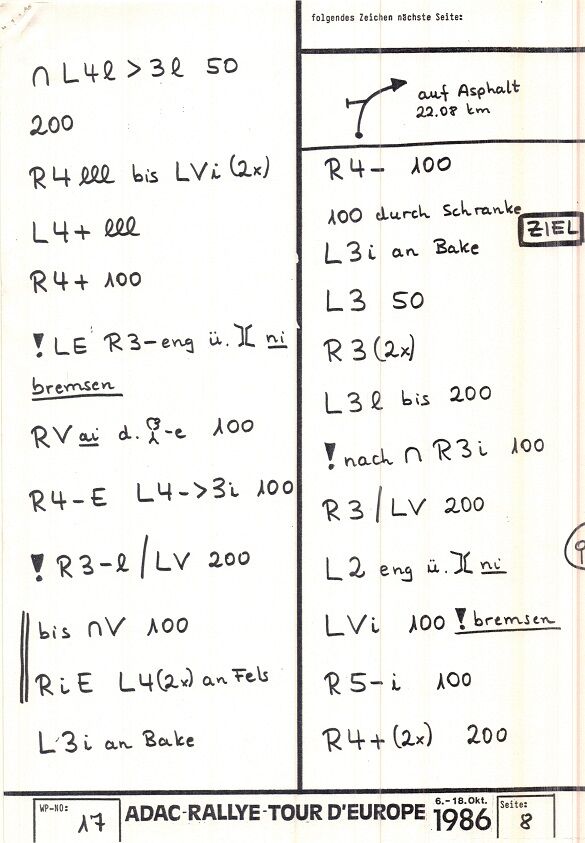 ∩ L4l > 3l 50
200
R4 lll bis LVi (2x)
L4+ lll
R4+ 100
! LE R3-eng ü. ][ ni
bremsen
RV ai d. -e 100
R4-E L4->3i 100
! R3-l / LV 200
bis ∩V 100
RiE L4(2x) an Fels
L3i an Bake
folgendes Zeichen nächste Seite:
auf Asphalt
22.08 km
R4- 100
100 durch Schranke
ZIEL
L3i an Bake
L3 50
R3 (2x)
L3l bis 200
! nach ∩ R3i 100
R3 / LV 200
L2 eng ü. ][ ni
LVi 100 ! bremsen
R5-i 100
R4+(2x) 200
WP-NO: 17
ADAC-RALLYE-TOUR D'EUROPE 6.-18.Okt. 1986
Seite: 8